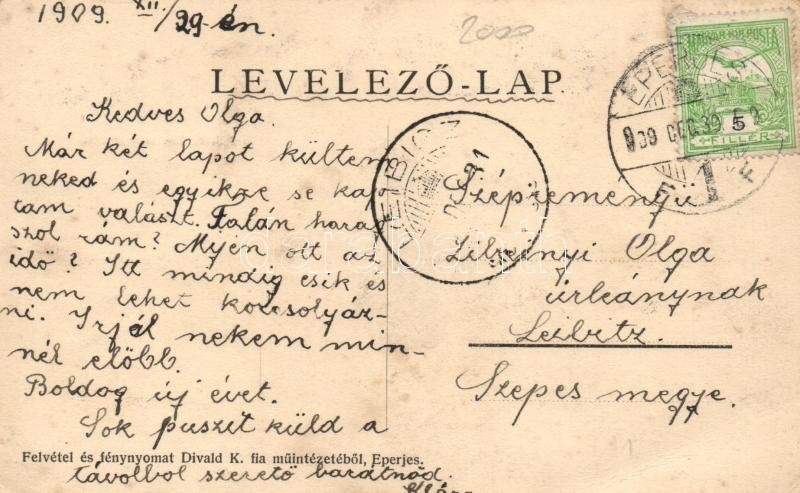 1909. XII./29-én.
2000
LEVELEZŐ-LAP
Kedves Olga.
Már két lapot kültem
neked és egyikre se kap
tam választ. Talán harag
szol rám? Myen ott az
idő? Itt mindig esik és
nem lehet korcsolyáz-
ni. Irjál nekem min-
nél előbb.
Boldog új évet.
Sok puszit küld a
távolból szerető barátnőd.
Szépreményü
Olga
úrleánynak
Leibitz.
Szepes megye.
MAGYAR KIR. POSTA
5
FILLÉR
EPERJES
909 DEC. 30
LEIBICZ
darabanth
Felvétel és fénynyomat Divald K. fia műintézetéből, Eperjes.